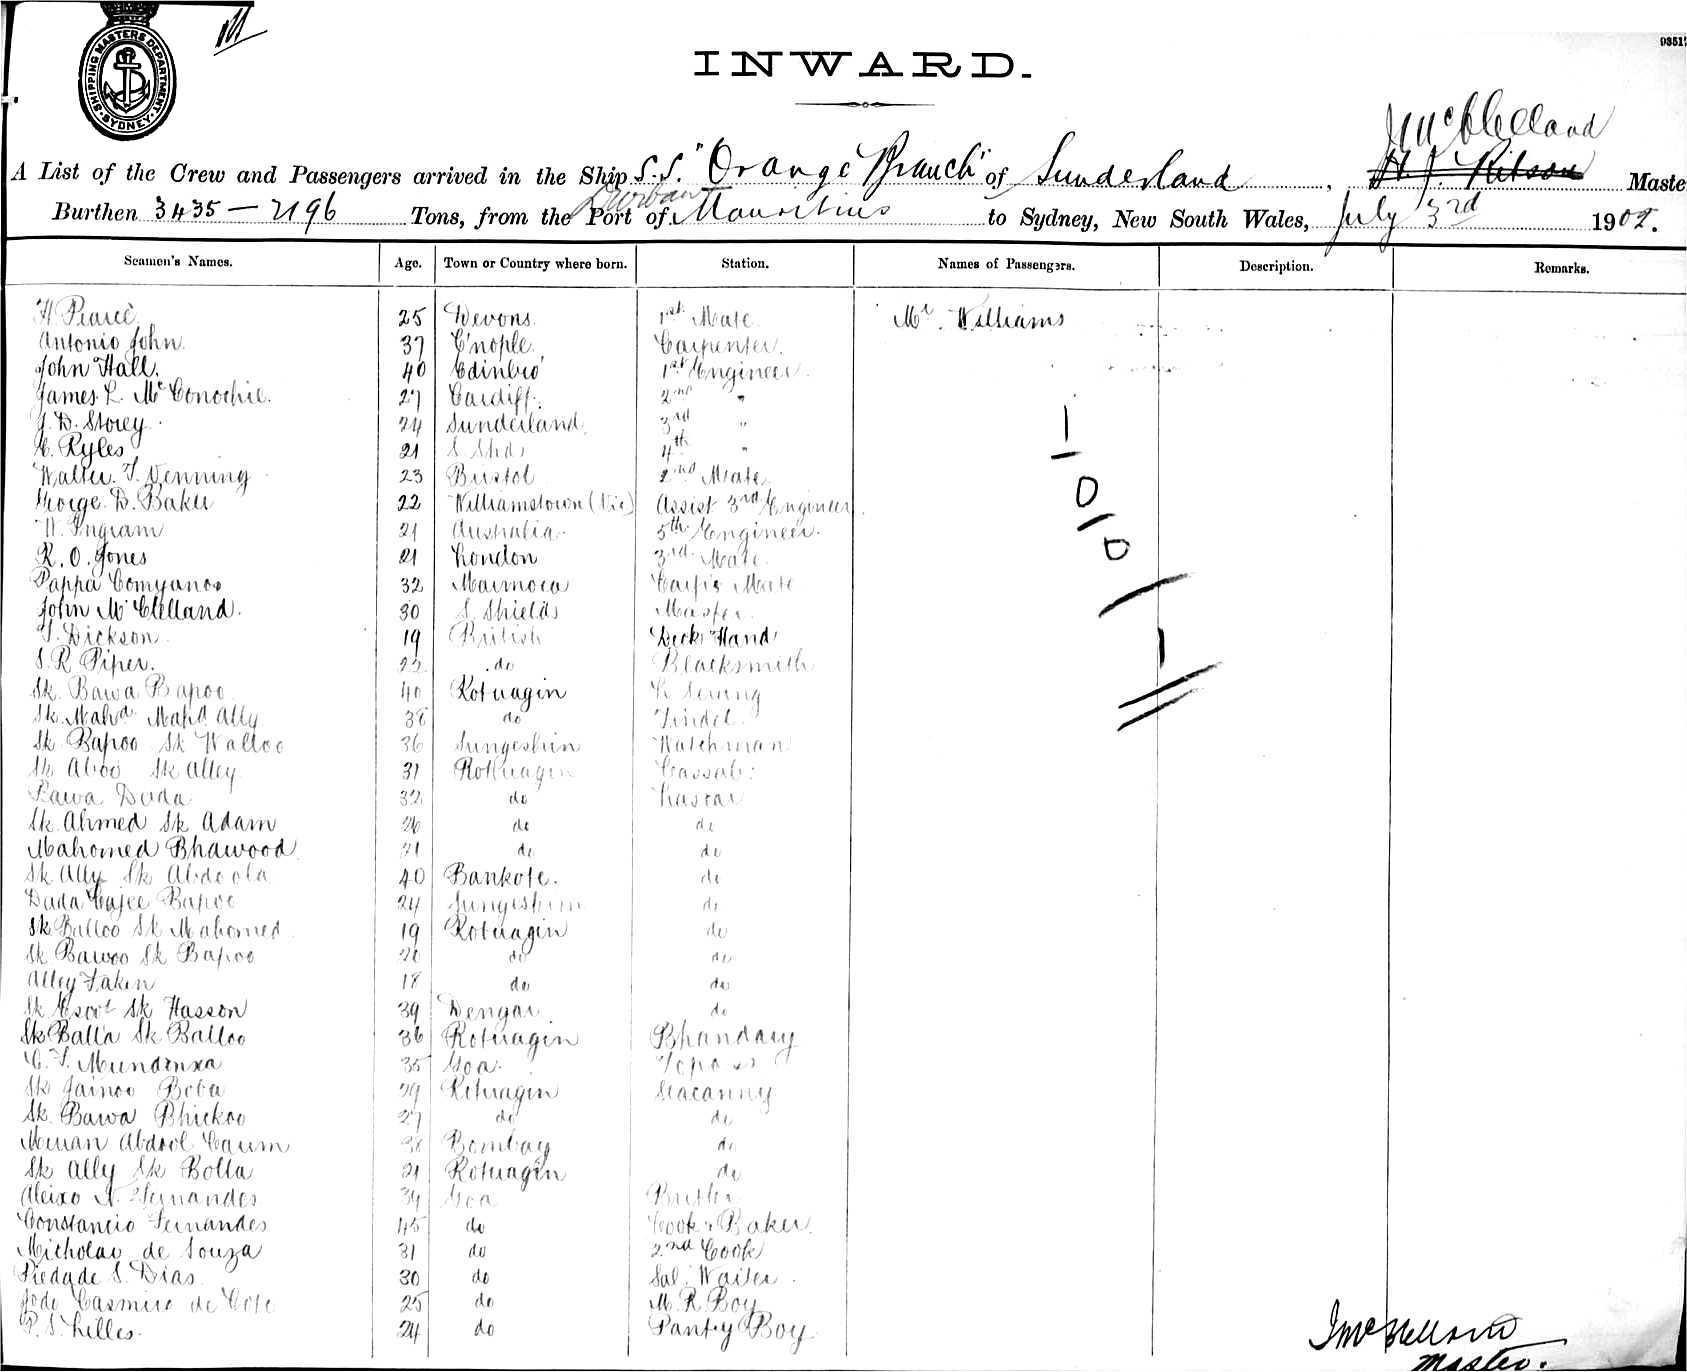 SHIPPING MASTERS DEPARTMENT SYDNEY
9351
INWARD.
J McClelland
A List of the Crew and Passengers arrived in the Ship S.S. "Orange Branch" of Sunderland, H J. Ritson Maste
Durban
Burthen 3435 – 2196 Tons, from the Port of Mauritius to Sydney, New South Wales, July 3rd 1902.
Seamen's Names. Age. Town or Country where born. Station. Names of Passengers. Description. Remarks.
H Pearce 25 Devons. 1st Mate. Mr. Williams
Antonio John. 37 C'nople. Carpenter.
John Hall. 40 Edinbro' 1st Engineer.
James L. McConochie. 27 Cardiff. 2nd "
J. D. Storey. 24 Sunderland. 3rd "
C. Ryles 21 S Shds 4th "
Walter. T. Venning 23 Bristol 2nd Mate
George. D. Baker 22 Williamstown (Vic) Assist 3rd Engineer.
W. Ingram 21 Australia. 5th Engineer.
R. O. Jones 21 London 3rd Mate.
Pappa Comyanos 32 Marmora Carp's Mate
John McClelland. 30 S. Shields Master.
T. Dickson. 19 British Deck Hand
S. R. Piper. 22 do Blacksmith
Sk. Bawa Bapoo 40 Rotnagin L. Serang
Sk. Mahd. Mahd. Ally 38 do Tindel.
Sk Bapoo Sk Walloo 36 Sungeshin Watchman
Sk Aboo Sk Alley. 31 Rotnagin Cassab.
Bawa Dada 32 do Lascar
Sk. Ahmed Sk Adam 26 do do
Mahomed Bhawood 21 do do
Sk Ally Sk Abdoola 40 Bankote. do
Dada Cajee Bapoo 24 Sungeshin do
Sk Balloo Sk Mahomed 19 Rotnagin do
Sk Bawoo Sk Bapoo 20 do do
Alley Fakir 18 do do
Sk Esoof Sk Hasson 39 Dengar do
Sk Balla Sk Balloo 36 Rotnagin Bhandary
35 Goa. Topass
Sk Jainoo Boba 29 Rotnagin Seacanny
Sk. Bawa Bhickoo 27 do do
Abdool 38 Bombay do
Sk Ally Sk Bolla 21 Rotnagin do
Aleixo N. Fernandes 34 Goa Butler
Constancio Fernandes 45 do Cook & Baker.
Nicholao de Souza 31 do 2nd Cook
Piedade S. Dias 30 do Sal. Waiter.
Casmiro de 25 do M. R. Boy
24 do Pantry Boy
J McClelland
Master.